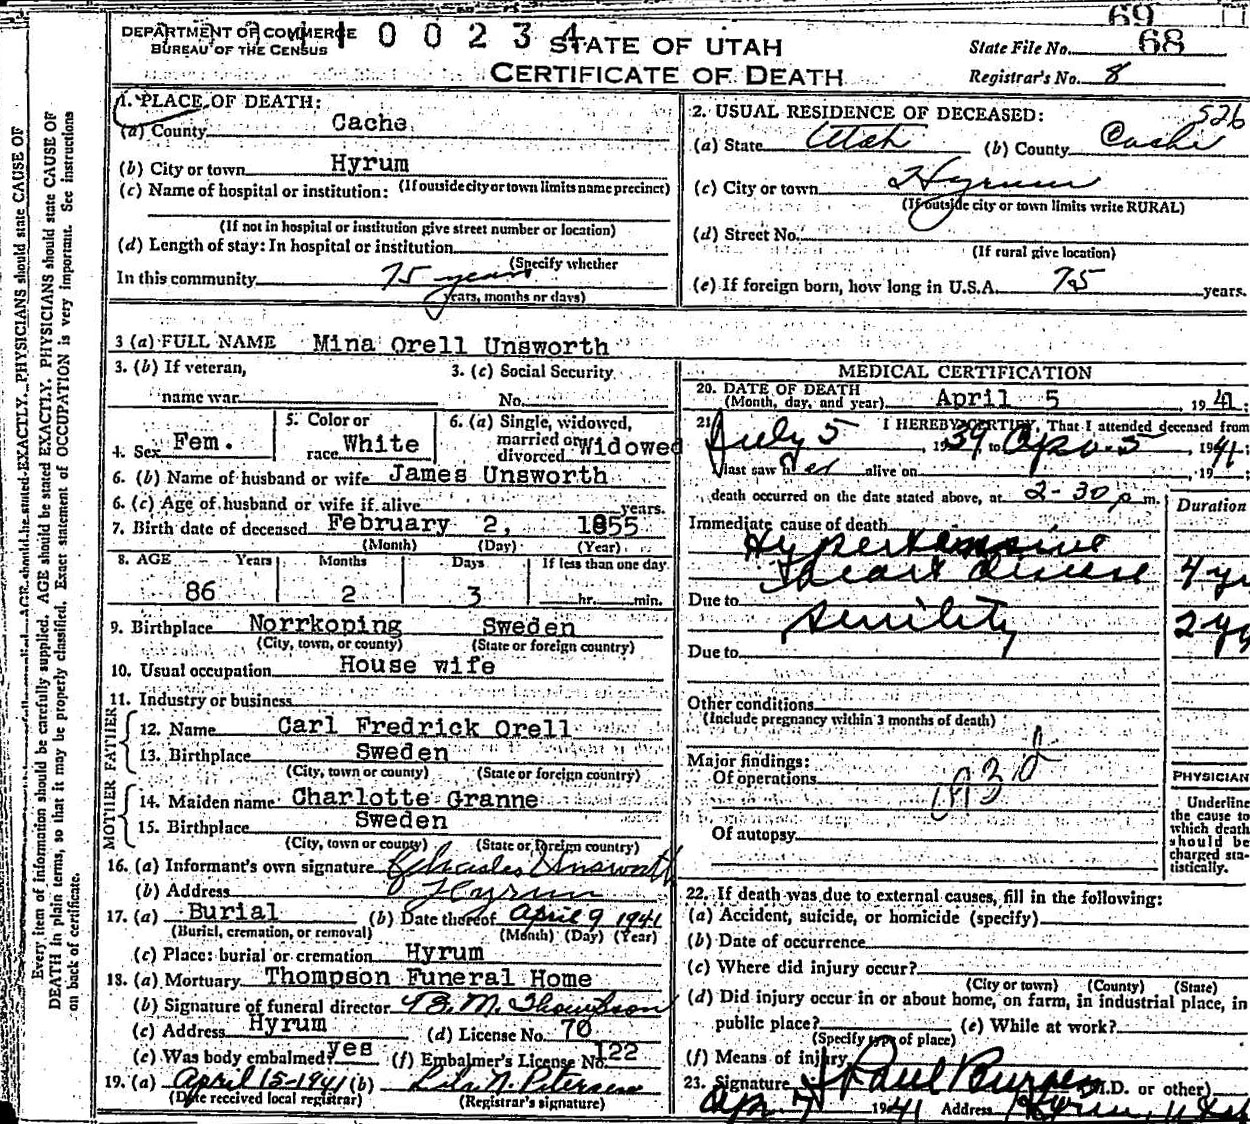 69
DEPARTMENT OF COMMERCE
BUREAU OF THE CENSUS
1 0 0 2 3 4
STATE OF UTAH
CERTIFICATE OF DEATH
State File No. 68
Registrar's No. 8
1. PLACE OF DEATH:
(a) County Cache
(b) City or town Hyrum
(c) Name of hospital or institution: (If outside city or town limits name precinct)
(If not in hospital or institution give street number or location)
(d) Length of stay: In hospital or institution
(Specify whether
In this community 75 years
years, months or days)
2. USUAL RESIDENCE OF DECEASED: 526
(a) State Utah (b) County Cache
(c) City or town Hyrum
(If outside city or town limits write RURAL)
(d) Street No.
(If rural give location)
(e) If foreign born, how long in U.S.A. 75 years.
3 (a) FULL NAME Mina Orell Unsworth
3. (b) If veteran,
name war
3. (c) Social Security
No.
4. Sex Fem.
5. Color or
race White
6. (a) Single, widowed,
married or
divorced Widowed
6. (b) Name of husband or wife James Unsworth
6. (c) Age of husband or wife if alive years.
7. Birth date of deceased February 2, 1855
(Month) (Day) (Year)
8. AGE Years Months Days If less than one day
86 2 3 hr. min.
9. Birthplace Norrkoping Sweden
(City, town, or county) (State or foreign country)
10. Usual occupation House wife
11. Industry or business
FATHER
12. Name Carl Fredrick Orell
13. Birthplace Sweden
(City, town or county) (State or foreign country)
MOTHER
14. Maiden name Charlotte Granne
15. Birthplace Sweden
(City, town or county) (State or foreign country)
16. (a) Informant's own signature Charles Unsworth
(b) Address Hyrum
17. (a) Burial (b) Date thereof April 9 1941
(Burial, cremation, or removal) (Month) (Day) (Year)
(c) Place: burial or cremation Hyrum
18. (a) Mortuary Thompson Funeral Home
(b) Signature of funeral director M. Thompson
(c) Address Hyrum (d) License No. 70
(e) Was body embalmed? yes (f) Embalmer's License No. 122
19. (a) April 15-1941 (b) Petersen
(Date received local registrar) (Registrar's signature)
MEDICAL CERTIFICATION
20. DATE OF DEATH
(Month, day, and year) April 5, 1941
21. I HEREBY CERTIFY, That I attended deceased from
July 5, 1939 to Apr. 5, 1941;
I last saw her alive on , 19 ;
death occurred on the date stated above, at 2-30 p m.
Duration
Immediate cause of death
Hypertensive
heart disease 4 yr
Due to
Senility 2 yr
Due to
Other conditions
(Include pregnancy within 3 months of death)
Major findings:
Of operations
Of autopsy
PHYSICIAN
Underline
the cause to
which death
should be
charged sta-
tistically.
22. If death was due to external causes, fill in the following:
(a) Accident, suicide, or homicide (specify)
(b) Date of occurrence
(c) Where did injury occur?
(City or town) (County) (State)
(d) Did injury occur in or about home, on farm, in industrial place, in
public place? (e) While at work?
(Specify type of place)
(f) Means of injury
23. Signature J Paul Burgess (M.D. or other)
Apr. 7 1941 Address Hyrum, Utah
Every item of information should be carefully supplied. AGE should be stated EXACTLY. PHYSICIANS should state CAUSE OF
DEATH in plain terms, so that it may be properly classified. Exact statement of OCCUPATION is very important. See instructions
on back of certificate.